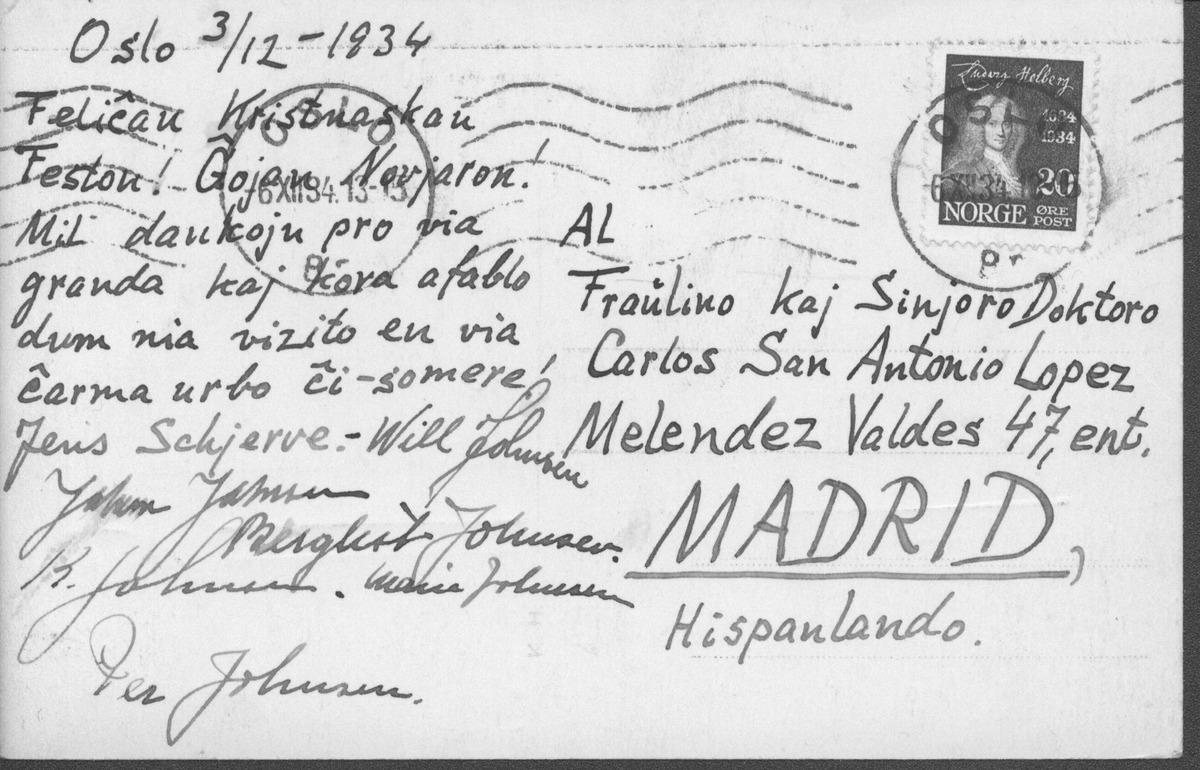 Oslo 3/12 - 1934
Feliĉan Kristnaskan
Feston! Ĝojan Novjaron!
Mil dankojn pro via
granda kaj kora afablo
dum nia vizito en via
ĉarma urbo ĉi-somere!
Jens Schjerve. - Will Johnsen
Johnsen
Bergliot Johnsen.
K. Johnsen. Marie Johnsen
Per Johnsen.
Ludvig Holberg
1684
1934
20
NORGE ØRE
POST
OSLO
6 XII 34. 13-15
Br
OSLO
6 XII 34
Br
Al
Fraŭlino kaj Sinjoro Doktoro
Carlos San Antonio Lopez
Melendez Valdes 47, ent.
MADRID,
Hispanlando.